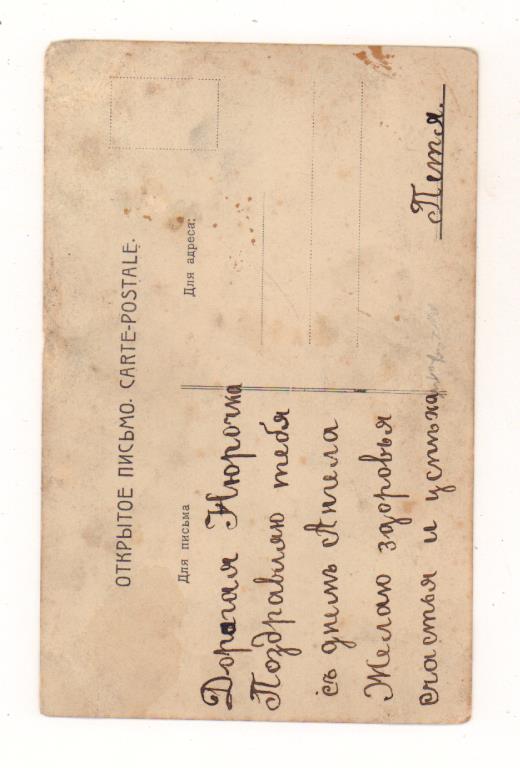 ОТКРЫТОЕ ПИСЬМО. CARTE-POSTALE.
Для письма
Для адреса:
Дорогая Нюрочка
Поздравляю тебя
съ днемъ Ангела
Желаю здоровья
счастья и успѣха
Петя.